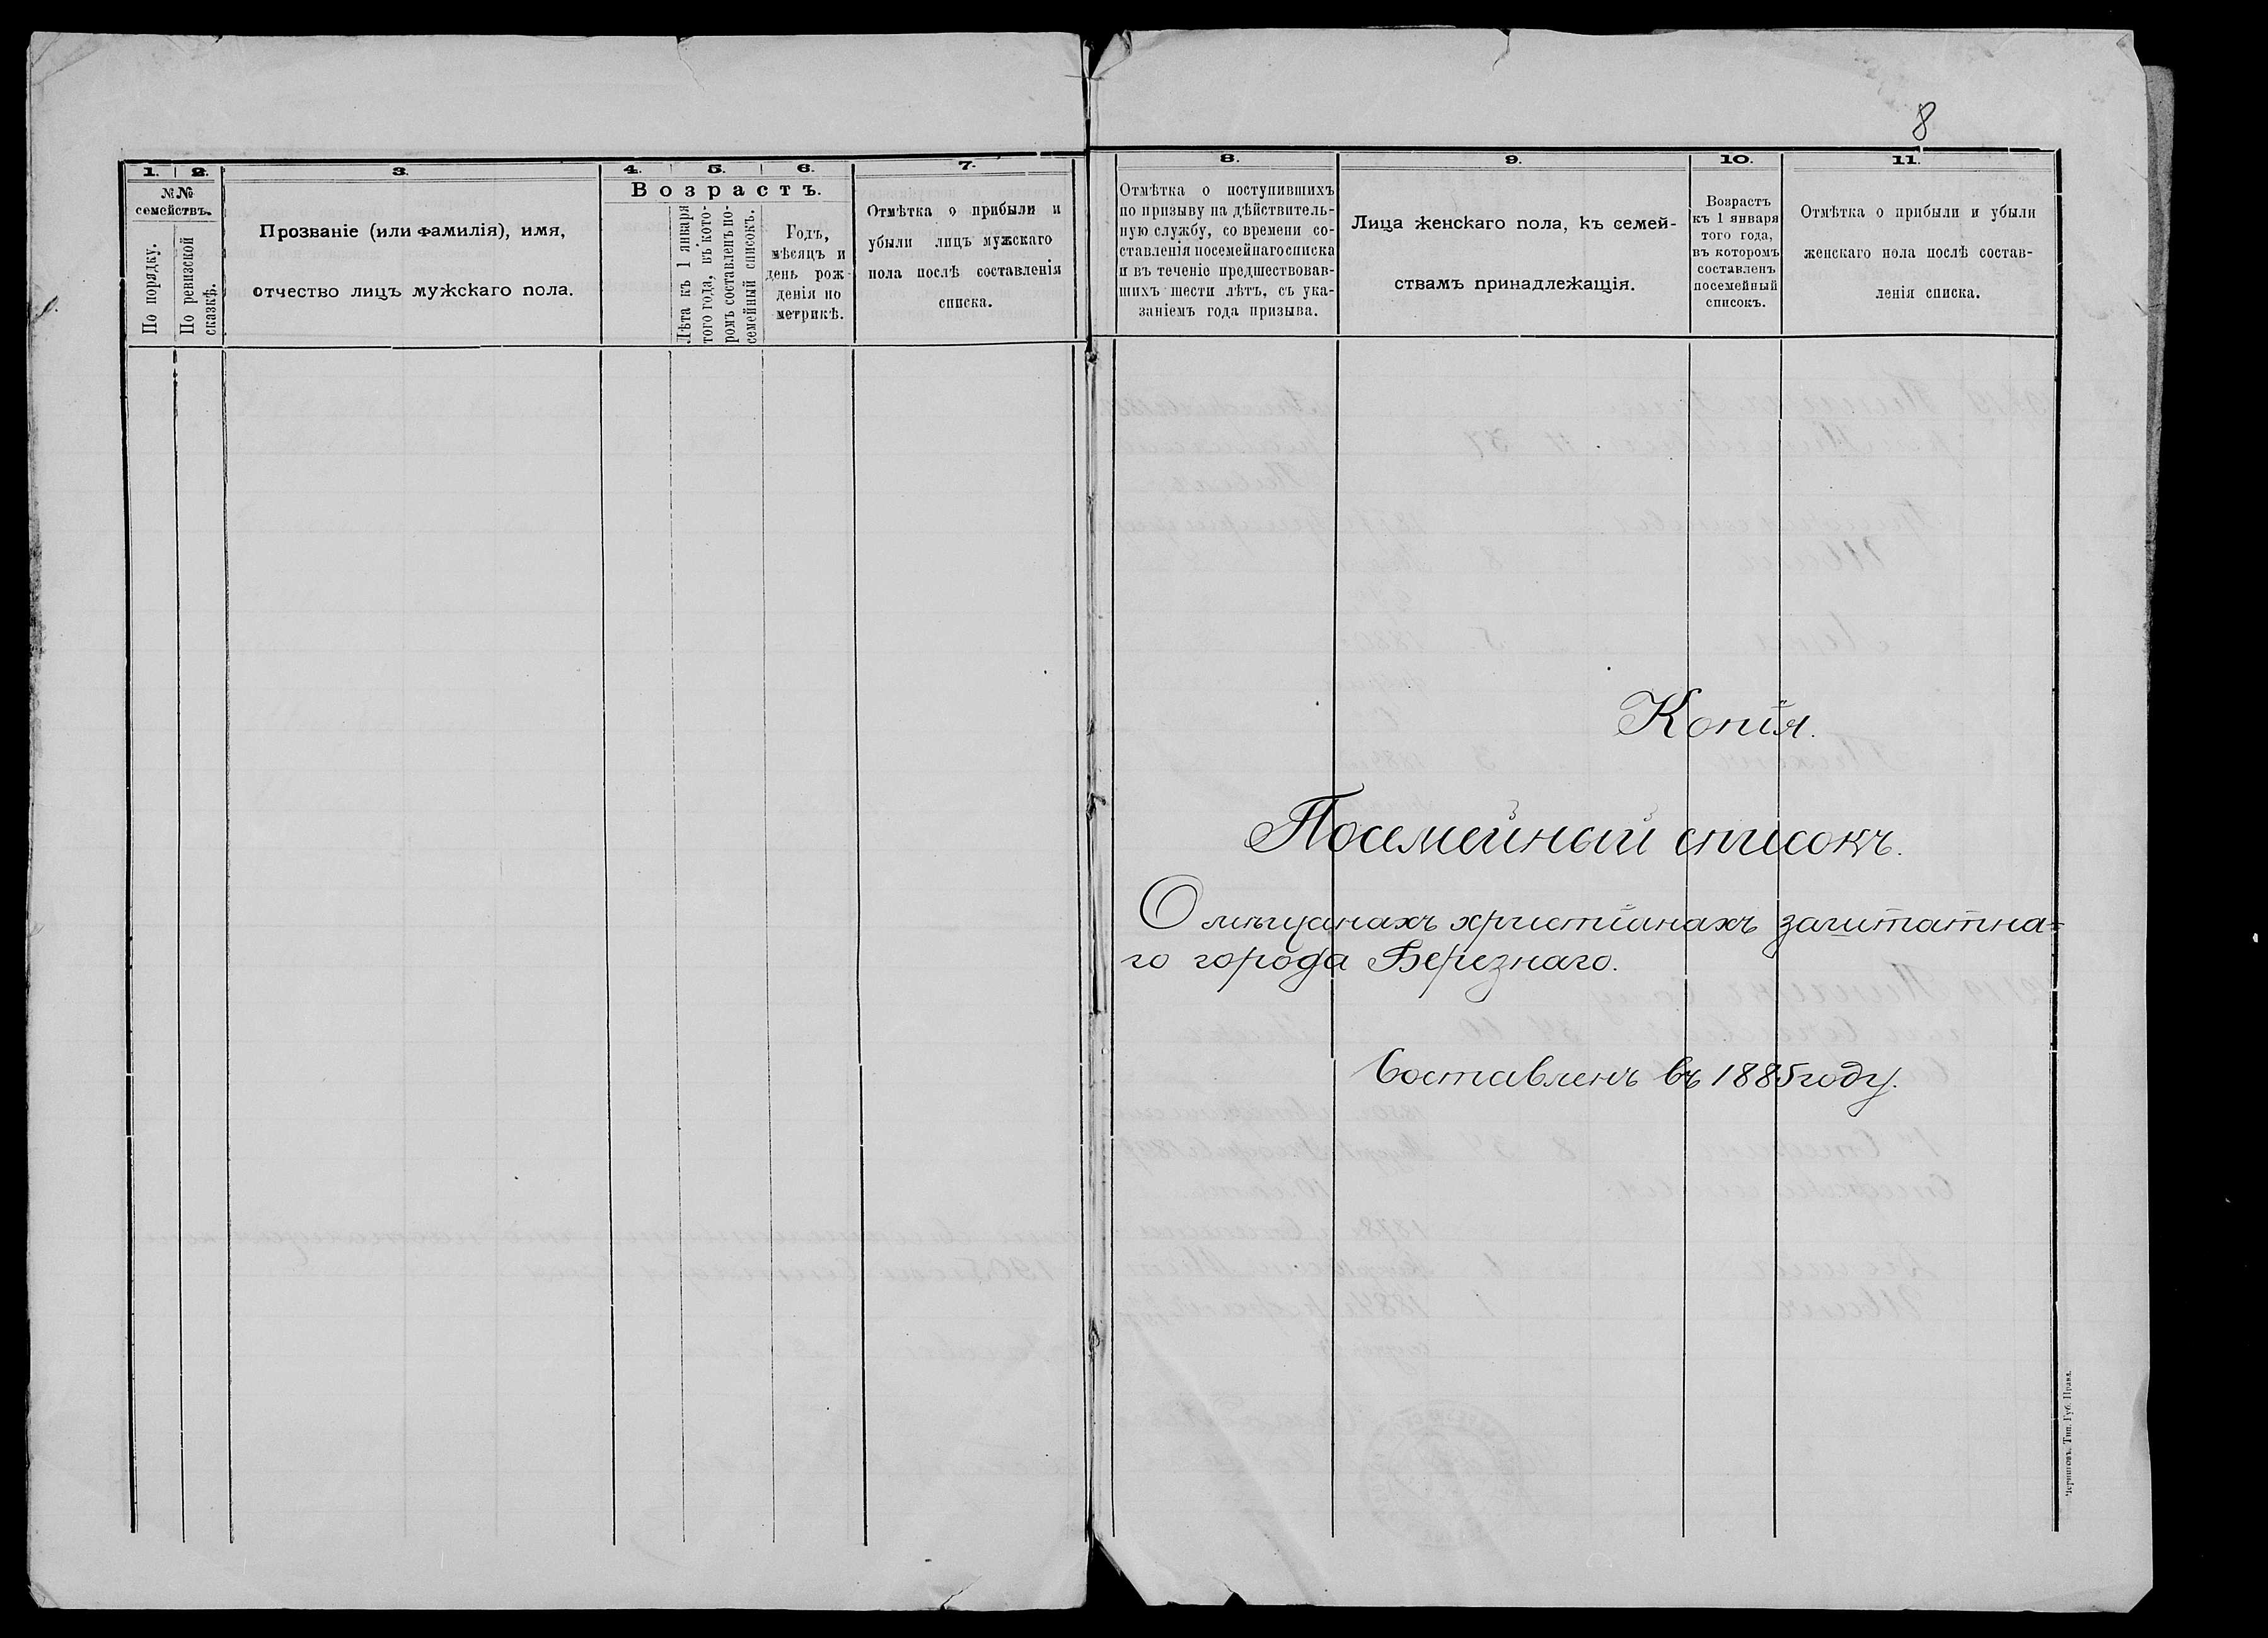 8
1. 2. 3. 4. 5. 6. 7.
№№
семействъ.
По порядку.
По ревизской
сказкѣ.
Прозваніе (или фамилія), имя,
отчество лицъ мужскаго пола.
Возрастъ.
Лѣта къ 1 января
того года, въ кото-
ромъ составленъ по-
семейный списокъ.
Годъ,
мѣсяцъ и
день рож-
денія по
метрикѣ.
Отмѣтка о прибыли и
убыли лицъ мужскаго
пола послѣ составленія
списка.
8. 9. 10. 11.
Отмѣтка о поступившихъ
по призыву на дѣйствитель-
ную службу, со времени со-
ставленія посемейнаго списка
и въ теченіе предшествовав-
шихъ шести лѣтъ, съ ука-
заніемъ года призыва.
Лица женскаго пола, къ семей-
ствамъ принадлежащія.
Возрастъ
къ 1 января
того года,
въ которомъ
составленъ
посемейный
списокъ.
Отмѣтка о прибыли и убыли
женскаго пола послѣ состав-
ленія списка.
Копія.
Посемейный списокъ.
О мѣщанахъ христіанахъ заштатна-
го города Березнаго.
Составленъ въ 1885 году.
Черниговъ. Тип. Губ. Правл.